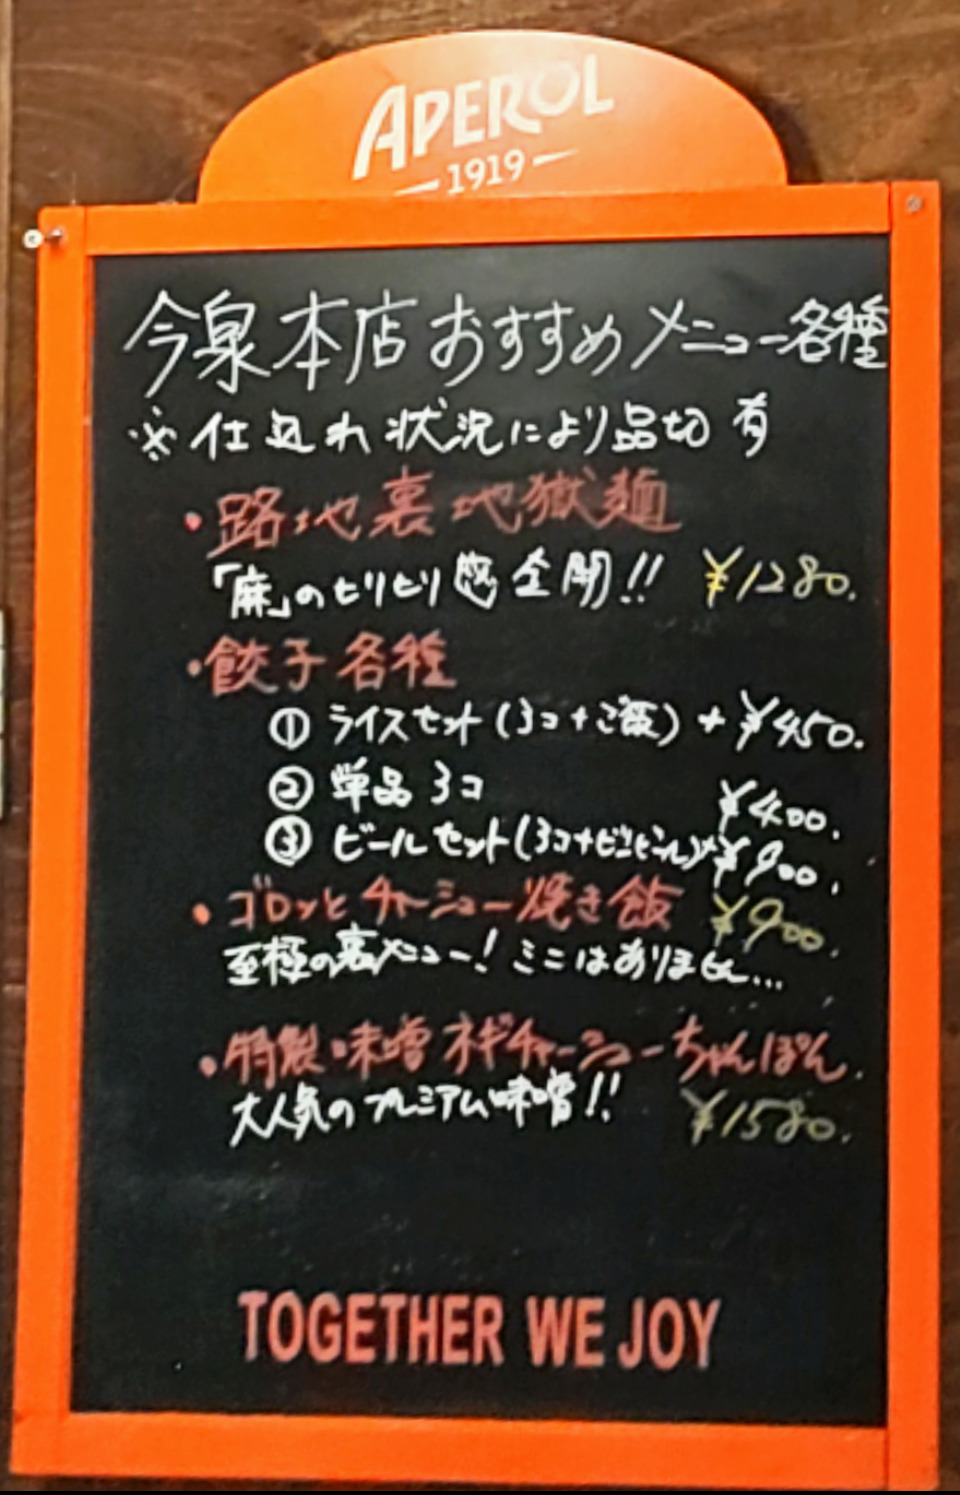 APEROL
1919
今泉本店おすすめメニュー各種
※仕込れ状況により品切有
・路地裏地獄麺
「麻」のヒリヒリ感全開!! ¥1280.
・餃子各種
① ライスセット(3コ+ご飯) + ¥450.
② 単品 3コ ¥400.
③ ビールセット(3コ+ビンビール) ¥900.
・ゴロッとチャーシュー焼き飯 ¥900.
至極の裏メニュー! ミニはありません...
・特製・味噌ネギチャーシューちゃんぽん.
大人気のプレミアム味噌!! ¥1580.
TOGETHER WE JOY